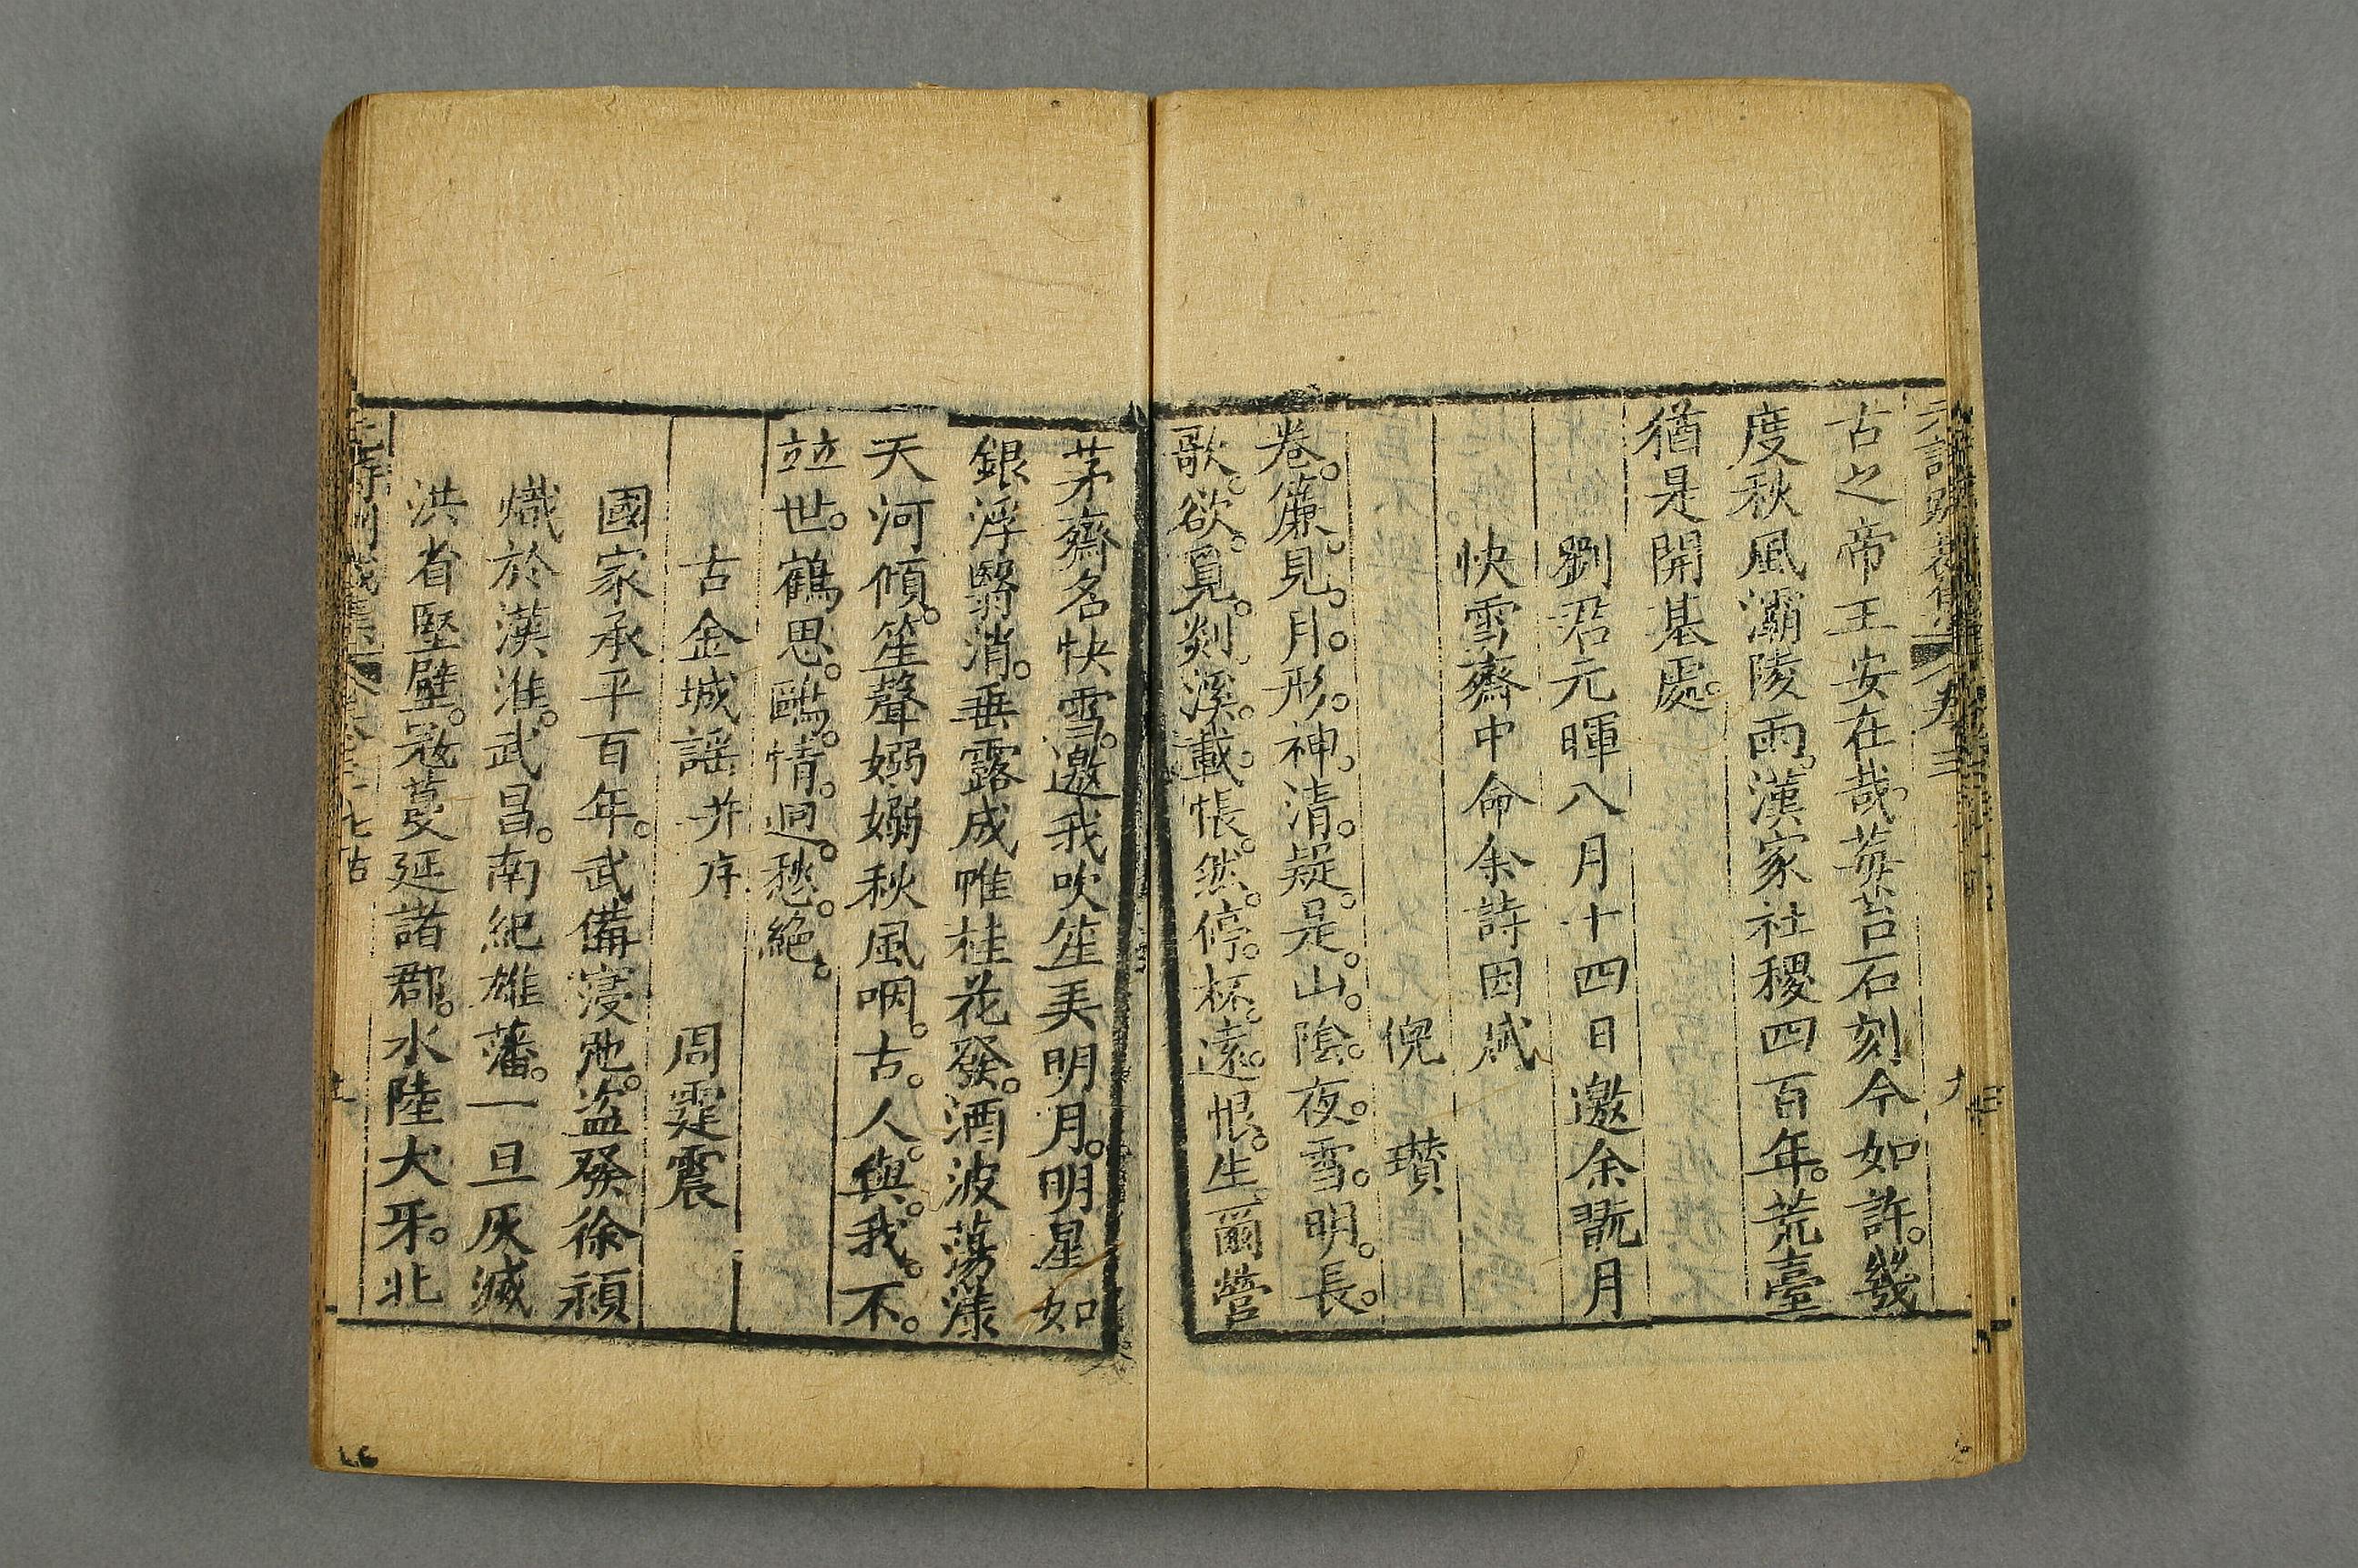 古之帝王安在哉莓苔石刻今如許幾
度秋風灞陵雨漢家社稷四百年荒臺
猶是開基處
劉君元暉八月十四日邀余翫月
快雪齋中命余詩因賦
倪瓚
卷簾見月形神清疑是山陰夜雪明長
歌欲覓剡溪載悵然停杯遠恨生爾營
茅齋名快雪邀我吹笙美明月明星如
銀浮翳消垂露成帷桂花發酒波蕩漾
天河傾笙聲嫋嫋秋風咽古人與我不
竝世鶴思鷗情迥愁絕
古金城謠 并序
周霆震
國家承平百年武備寖弛盜發徐潁
熾於漢淮武昌南紀雄藩一旦灰滅
洪省堅壁寇蔓延諸郡水陸犬牙北